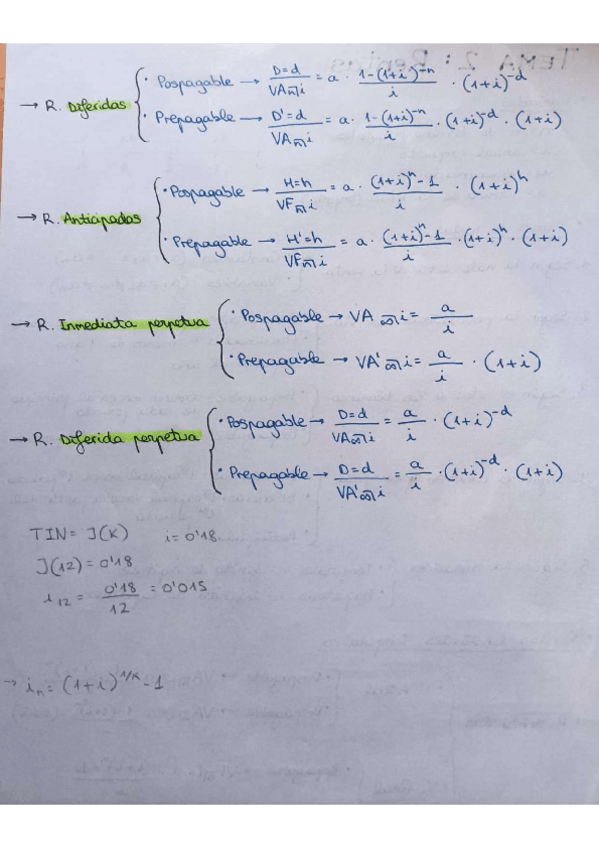 → R. Diferidas
· Pospagable → D=d / VA n̅|i = a · 1-(1+i)^-n / i · (1+i)^-d
· Prepagable → D'=d / VA n̅|i = a · 1-(1+i)^-n / i · (1+i)^-d · (1+i)
→ R. Anticipadas
· Pospagable → H=h / VF n̅|i = a · (1+i)^n - 1 / i · (1+i)^h
· Prepagable → H'=h / VF n̅|i = a · (1+i)^n - 1 / i · (1+i)^h · (1+i)
→ R. Inmediata perpetua
· Pospagable → VA ∞̅|i = a / i
· Prepagable → VA' ∞̅|i = a / i · (1+i)
→ R. Diferida perpetua
· Pospagable → D=d / VA ∞̅|i = a / i · (1+i)^-d
· Prepagable → D=d / VA' ∞̅|i = a / i · (1+i)^-d · (1+i)
TIN= J(K) i=0'18
J(12)=0'18
i12 = 0'18 / 12 = 0'015
→ in = (1+i)^1/K - 1